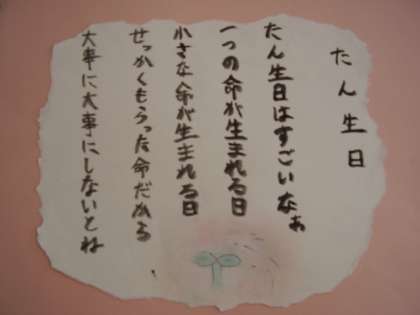 たん生日
たん生日はすごいなぁ
一つの命が生まれる日
小さな命が生まれる日
せっかくもらった命だから
大事に大事にしないとね